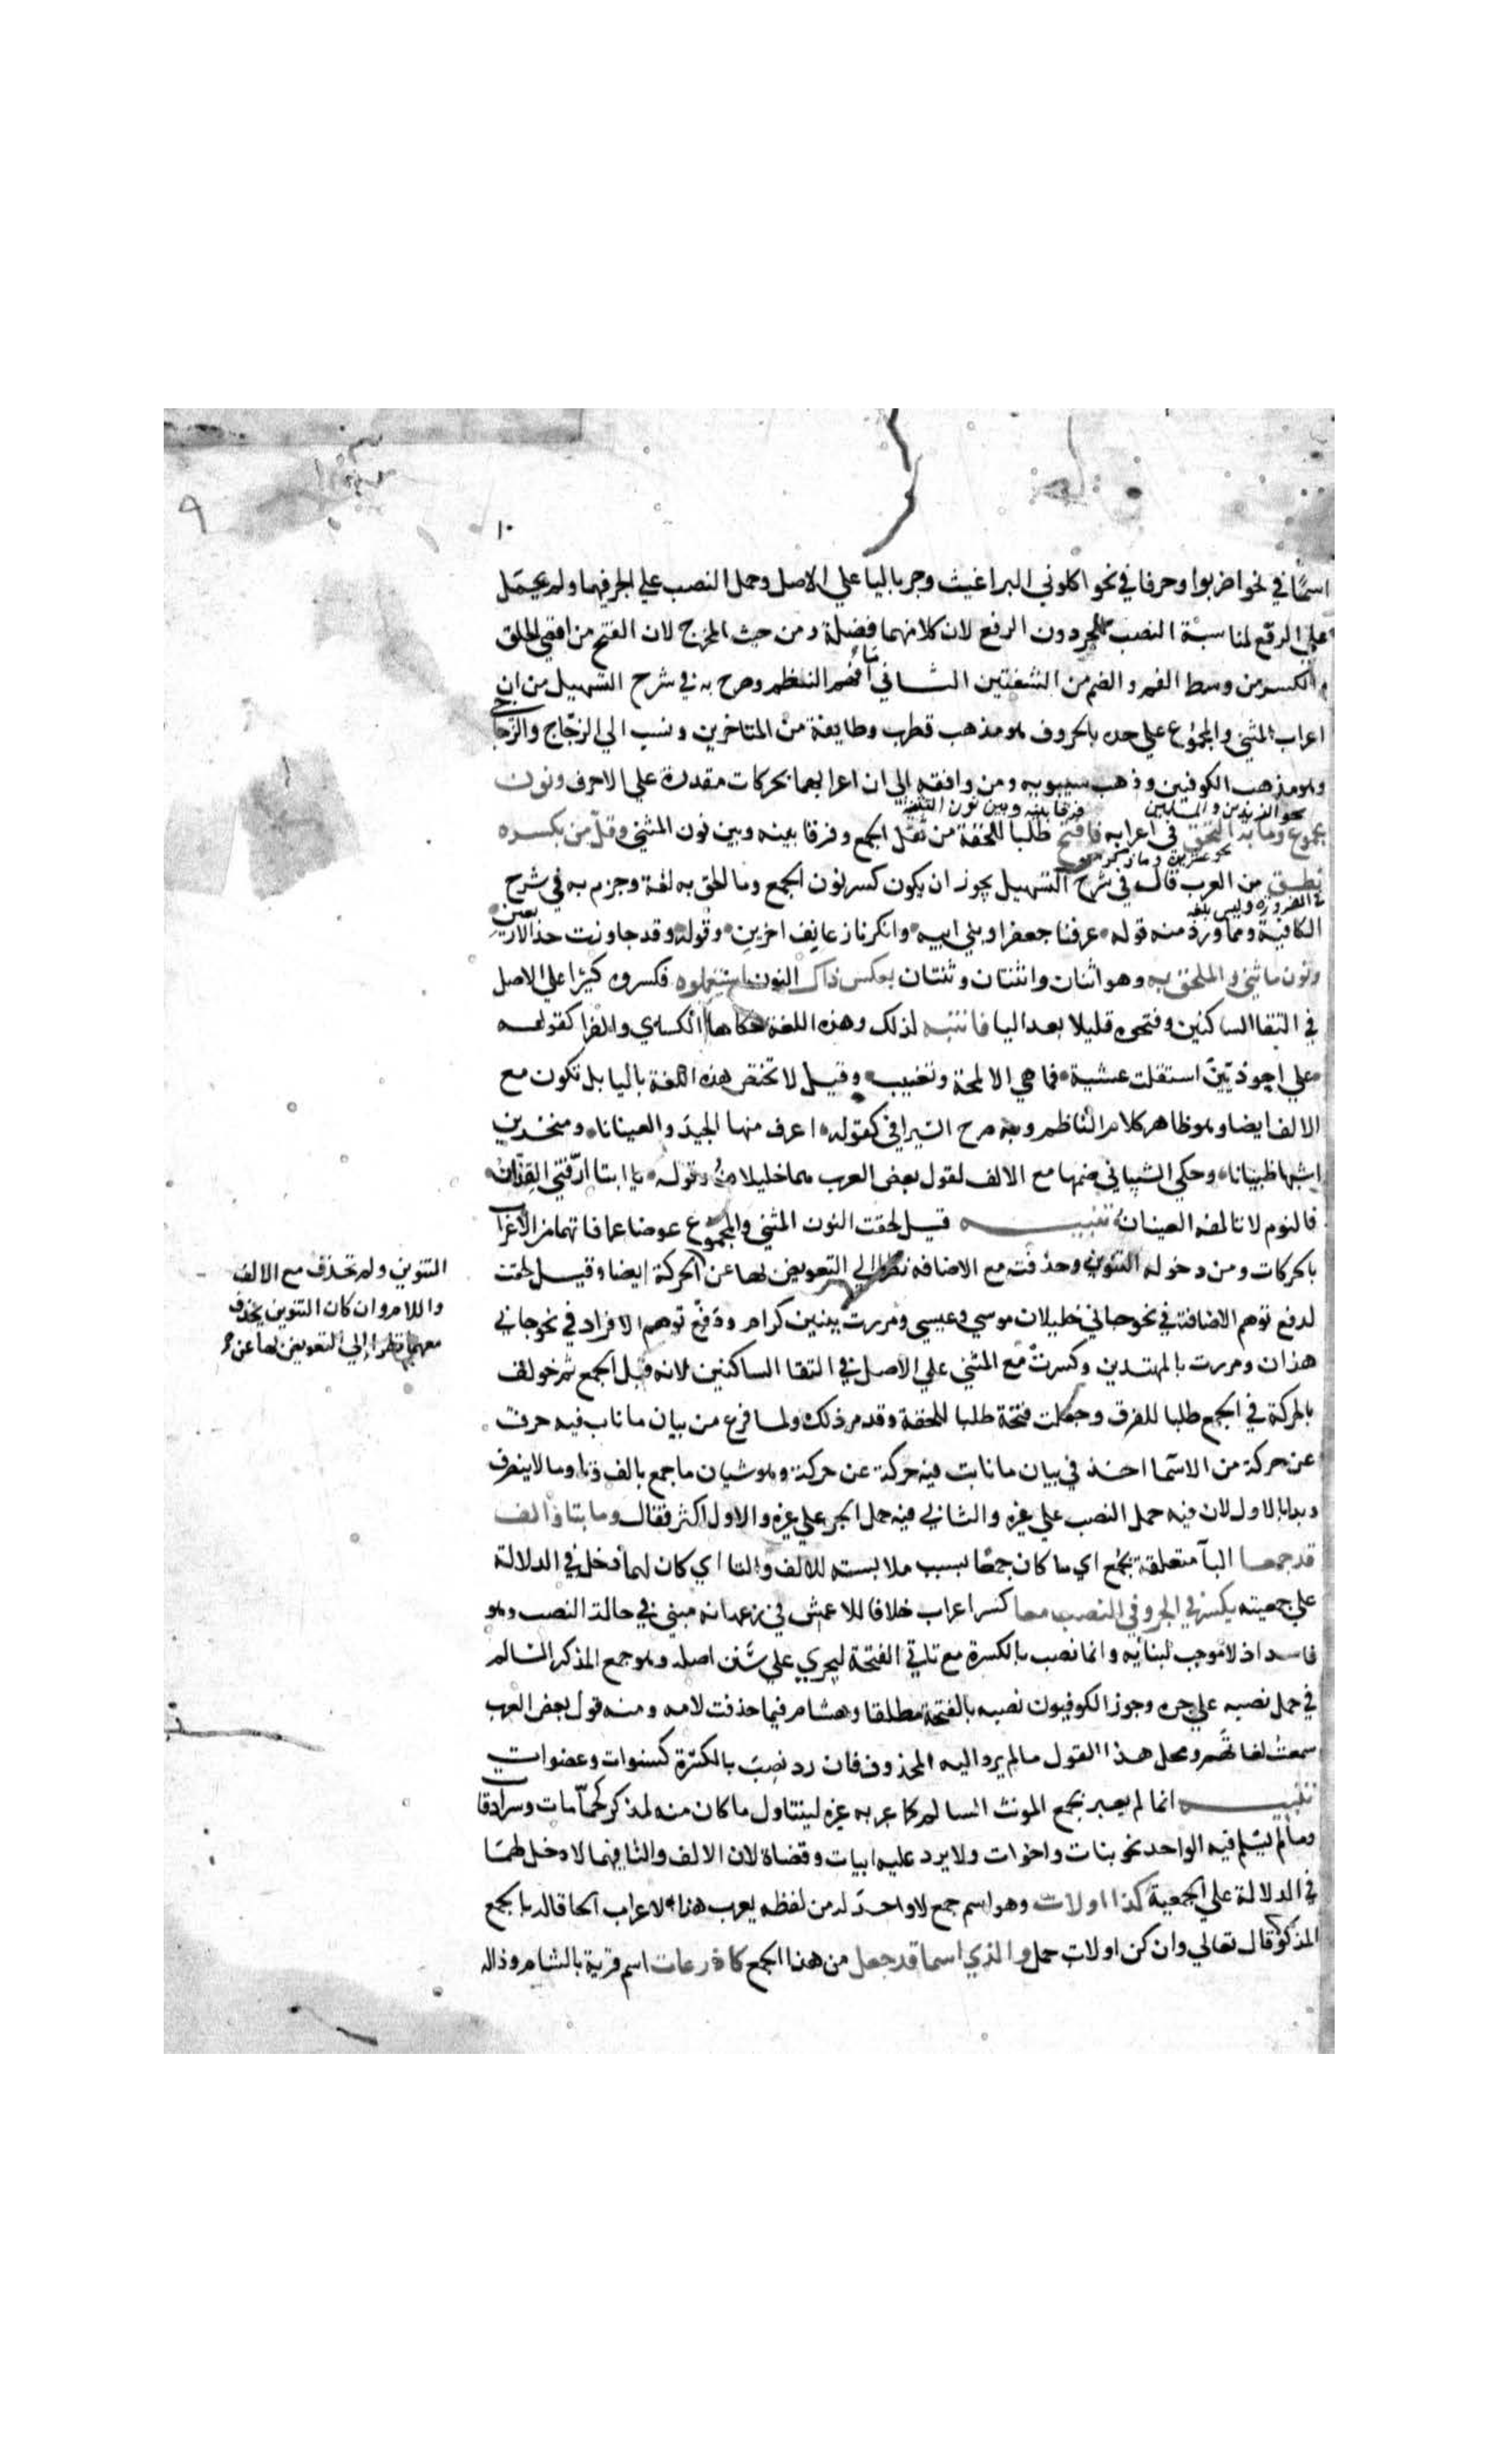 ١٠
٩
اسمًا في نحو اضربوا وحرفا في نحو اكلوني البراغيث وجر باليا علي الاصل وحمل النصب علي الجر فيهما ولم يحمل
علي الرفع لمناسبة النصب للجر دون الرفع لان كلا منهما فضلة ومن حيث المخرج لان الفتح من اقصي الحلق
والكسر من وسط الفم والضم من الشفتين الثاني ما افهمه النظم وصرح به في شرح التسهيل من ان
اعراب المثني والمجموع علي حده بالحروف هو مذهب قطرب وطايفة من المتاخرين ونسب الي الزجّاج والزجاجي
وهو مذهب الكوفيين وذهب سيبويه ومن وافقه الي ان اعرابهما بحركات مقدرة علي الاحرف ونون
نحو الزيدين والمسلمين
فرقا بينه وبين نون التثنية
مجموع وما به التحق في اعرابه فافتح طلبا للخفة من ثقل الجمع وفرقا بينه وبين نون المثني وقلّ من بكسره
نحو عشرين وما
نطق من العرب قال في شرح التسهيل يجوز ان يكون كسر نون الجمع وما الحق به لغة وجزم به في شرح
في الضرورة وليس بلغة
الكافية ومما ورد منه قوله عرفنا جعفرا وبني ابيه وانكرنا زعانف اخرين وقوله وقد جاوزت حد الاربعين
ونون ما ثني والملحق به وهو اثنان واثنتان وثنتان بعكس ذاك النون استعملوه فكسروه كثيرا علي الاصل
في التقا الساكنين وفتحوه قليلا بعد اليا فانتبه لذلك وهذه اللغة حكاها الكساي والفرا كقوله
علي احوذيّينَ استقلت عشية فما هي الا لمحة وتغيب وقيل لا تختص هذه اللغة باليا بل تكون مع
الالف ايضا وهو ظاهر كلام الناظم وبه صرح السيرافي كقوله اعرف منها الجيد والعينانا ومنخرين
اشبها ظبيانا وحكي الشيباني ضمها مع الالف لقول بعض العرب هما خليلان وقوله يا ابتا ارّقني القِذّانُ
فالنوم لا تالفه العينان تنبيه قيل لحقت النون المثني والمجموع عوضا عما فاتهما من الاعراب
بالحركات ومن دخوله التنوين وحذفت مع الاضافة نظرا الي التعويض بها عن الحركة ايضا وقيل لحقت
لدفع توهم الاضافة في نحو جاني خليلان موسي وعيسي ومررت ببنين كرام ودفع توهم الافراد في نحو جاني
هذان ومررت بالمهتدين وكسرت مع المثني علي الاصل في التقا الساكنين لانه قبل الجمع ثم خولف
بالحركة في الجمع طلبا للفرق وجعلت فتحة طلبا للخفة وقد مر ذلك ولما فرغ من بيان ما ناب فيه حرف
عن حركة من الاسما اخذ في بيان ما نابت فيه حركة عن حركة وهو شيان ما جمع بالف وتا وما لا ينصرف
وبدا بالاول لان فيه حمل النصب علي غيره والثاني فيه حمل الجر علي غيره والاول اكثر فقال وما بتا والف
قد جمعا البا متعلقة بجمع اي ما كان جمعا بسبب ملابسته للالف والتا اي كان لهما دخل في الدلالة
علي جمعيته يكسر في الجر وفي النصب معا كسر اعراب خلافا للاخفش في زعمه انه مبني في حالة النصب وهو
فاسد اذ لا موجب لبنايه وانما نصب بالكسرة مع تاتي الفتحة ليجري علي سَنَن اصله وهو جمع المذكر السالم
في حمل نصبه علي جره وجوز الكوفيون نصبه بالفتحة مطلقا وهشام فيما حذفت لامه ومنه قول بعض العرب
سمعت لغاتَهم ومحل هذا القول ما لم يرد اليه المحذوف فان رد نصب بالكسرة كسنوات وعضوات
تنبيه انما لم يعبر بجمع المونث السالم كما عبر به غيره ليتناول ما كان منه لمذكر كحمّامات وسرادقات
وما لم يسلم فيه الواحد نحو بنات واخوات ولا يرد عليه ابيات وقضاة لان الالف والتا فيهما لا دخل لهما
في الدلالة علي الجمعية كذا اولات وهو اسم جمع لا واحد له من لفظه يعرب هذا الاعراب الحاقا له بالجمع
المذكور قال تعالي وان كن اولات حمل والذي اسما قد جعل من هذا الجمع كاذرعات اسم قرية بالشام وذاله
التنوين ولم تحذف مع الالف
واللام وان كان التنوين يحذف
معهما نظرا إلي التعويض بها عن